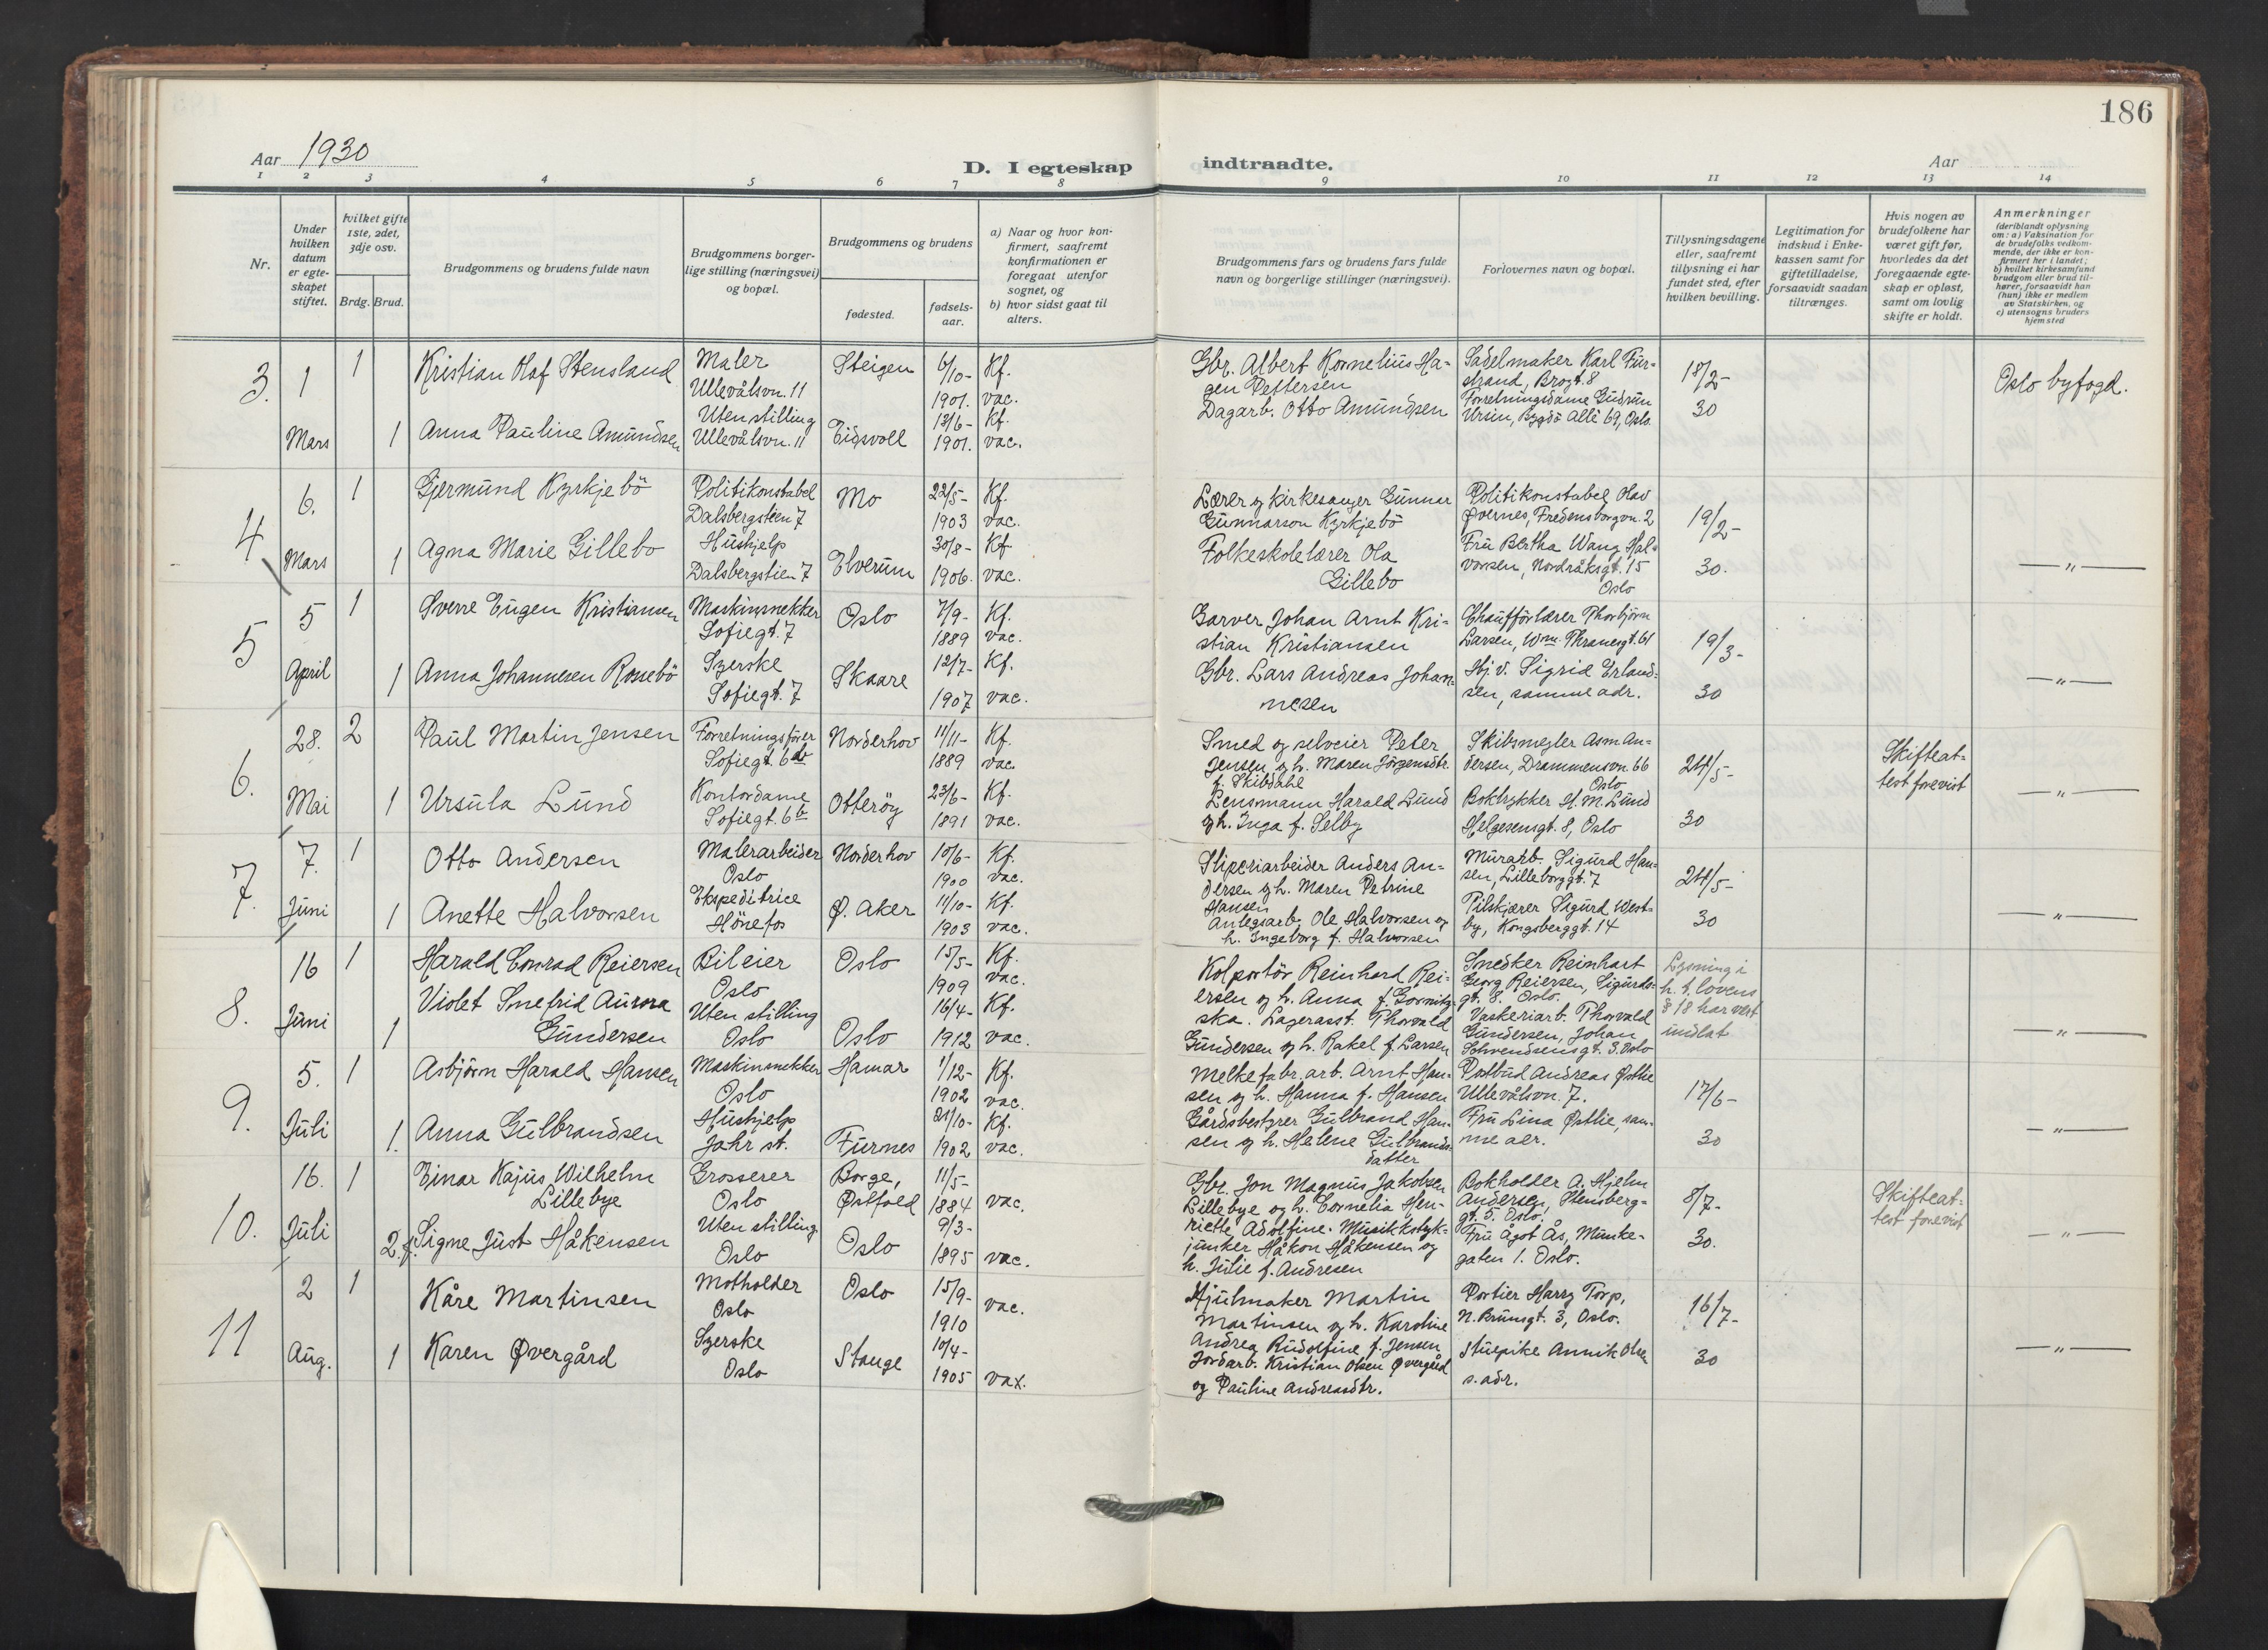 186
Aar 1930
D. I egteskap indtraadte.
Aar
1 2 3 4 5 6 7 8 9 10 11 12 13 14
Nr.
Under hvilken datum er egteskapet stiftet.
hvilket gifte 1ste, 2det, 3dje osv.
Brdg. Brud.
Brudgommens og brudens fulde navn
Brudgommens borgerlige stilling (næringsvei) og bopæl.
Brudgommens og brudens
fødested.
fødselsaar.
a) Naar og hvor konfirmert, saafremt konfirmationen er foregaat utenfor sognet, og
b) hvor sidst gaat til alters.
Brudgommens fars og brudens fars fulde navn og borgerlige stillinger (næringsvei).
Forlovernes navn og bopæl.
Tillysningsdagene eller, saafremt tillysning ei har fundet sted, efter hvilken bevilling.
Legitimation for indskud i Enkekassen samt for giftetilladelse, forsaavidt saadan tiltrænges.
Hvis nogen av brudefolkene har været gift før, hvorledes da det foregaaende egteskap er opløst, samt om lovlig skifte er holdt.
Anmerkninger
(deriblandt oplysning om: a) Vaksination for de brudefolks vedkommende, der ikke er konfirmert her i landet;
b) hvilket kirkesamfund brudgom eller brud tilhører, forsaavidt han (hun) ikke er medlem av Statskirken, og
c) utensogns bruders hjemsted
3.
1
Mars
1
Kristian Olaf Stensland
Maler
Ullevålsvn. 11
Steigen
6/10-
1901.
Kf.
vac.
1
Anna Pauline Amundsen
Uten stilling
Ullevålsvn. 11
Eidsvoll
13/6-
1901.
Kf.
vac.
Gbr. Albert Kornelius Ha-
gen Pettersen
Dagarb. Otto Amundsen
Sadelmaker Karl Fur-
strand, Brogt. 8
Forretningsdame Gudrun
Ursin, Bygdö Allé 69, Oslo.
18/2-
30
Oslo byfogd.
4
6.
Mars
1
Gjermund Kyrkjebö
Politikonstabel
Dalsbergstien 7
Mo
22/5-
1903
Kf.
vac.
1
Agna Marie Gillebo
Hushjelp
Dalsbergstien 7
Elverum
30/8-
1906.
Kf.
vac.
Lærer og kirkesanger Gunnar
Gunnarson Kyrkjebö
Folkeskolelærer Ola
Gillebo
Politikonstabel Olav
Øvernes, Fredensborgvn. 2
Fru Bertha Wang Hal-
vorsen, Nordråksgt. 15
Oslo
19/2-
30.
— " —
5
5
April
1
Sverre Eugen Kristiansen
Maskinsnekker
Sofiegt. 7
Oslo
7/9-
1889
Kf.
vac.
1
Anna Johannesen Rossebö
Syerske
Sofiegt. 7
Skaare
12/7-
1907
Kf.
vac.
Garver Johan Arnt Kri-
stian Kristiansen
Gbr. Lars Andreas Johan-
nesen
Chaufförlærer Thorbjørn
Larsen, Wm Thranesgt. 61
Hj.v. Sigrid Erland-
sen, samme adr.
19/3-
30
— " —
6.
28.
Mai
2
Paul Martin Jensen
Forretningsfører
Sofiegt. 6b
Norderhov
11/11-
1889
Kf.
vac.
1
Ursula Lund
Kontordame
Sofiegt. 6b
Otteröy
23/6-
1891
Kf.
vac.
Smed og selveier Peter
Jensen og h. Maren Jörgensdtr.
f. Skibdahl
Lensmann Harald Lund
og h. Inga f. Selby
Skibsmegler Asm An-
dersen, Drammensvn. 66
Oslo
Boktrykker H. M. Lund
Helgesensgt. 8, Oslo
24/5-
30
Skifteat-
test forevist
— " —
7.
7.
Juni
1
Otto Andersen
Malerarbeider
Oslo
Norderhov
10/6-
1900
Kf.
vac.
1
Anette Halvorsen
Ekspeditrice
Hönefos
Ø. Aker
11/10-
1903
Kf.
vac.
Sliperiarbeider Anders An-
dersen og h. Maren Petrine
Hansen
Anlegsarb. Ole Halvorsen og
h. Ingeborg f. Halvorsen
Murarb. Sigurd Han-
sen, Lilleborggt. 7
Pilskjærer Sigurd West-
by, Kongsberggt. 14
24/5-
30
— " —
8.
16
Juni
1
Harald Conrad Reiersen
Bileier
Oslo
Oslo
15/5-
1909
Kf.
vac.
1
Violet Snefrid Aurora
Gundersen
Uten stilling
Oslo
Oslo
16/4-
1912
Kf.
vac.
Kolportör Reinhard Rei-
ersen og h. Anna f. Gornitz-
ska. Lagerasst. Thorvald
Gundersen og h. Rakel f. Larsen
Snedker Reinhart
Georg Reiersen, Sigurds-
gt. 8. Oslo.
Vaskeriarb. Thorvald
Gundersen, Johan
Schvendsensgt. 3. Oslo
Lysning i
h. t. lovens
§ 18 har vært
undlat
— " —
9.
5.
Juli
1
Asbjörn Harald Hansen
Maskinsnekker
Oslo
Hamar
1/12-
1902
Kf.
vac.
1.
Anna Gulbrandsen
Hushjelp
Jahr st.
Furnes
21/10-
1902
Kf.
vac.
Melkefabr. arb. Arnt Han-
sen og h. Hanna f. Hansen
Gårdsbestyrer Gulbrand Han-
sen og h. Helene Gulbrands-
datter
Postbud Andreas Østlie
Ullevålsvn. 7.
Fru Lina Østlie, sam-
me adr.
17/6-
30
— " —
10.
16.
Juli
1
Einar Kajus Wilhelm
Lillebye
Grosserer
Oslo
Borge,
Østfold
11/5-
1884
vac.
2. f.
Signe Just Håkensen
Uten stilling
Oslo
Oslo
9/3-
1895
vac.
Gbr. Jon Magnus Jakobsen
Lillebye og h. Cornelia Hen-
riette Adolfine. Musikkstyk-
junker Håkon Håkensen og
h. Julie f. Andresen
Bokholder A. Hjelm
Andersen, Stensberg-
gt. 5. Oslo.
Fru Ågot Ås, Munke-
gaten 1. Oslo.
8/7-
30.
Skifteat-
test forevist
— " —
11
2
Aug.
1
Kåre Martinsen
Motholder
Oslo
Oslo
15/9-
1910
vac.
1
Karen Øvergård
Syerske
Oslo
Stange
10/4-
1905
vax.
Hjulmaker Martin
Martinsen og h. Karoline
Andrea Rudolfine f. Jensen
Jordarb. Kristian Olsen Øvergård
og Pauline Andreasdtr.
Portier Harry Torp,
N. Brunsgt. 3, Oslo.
Stuepike Annik Olsen
s. adr.
16/7-
30
— " —